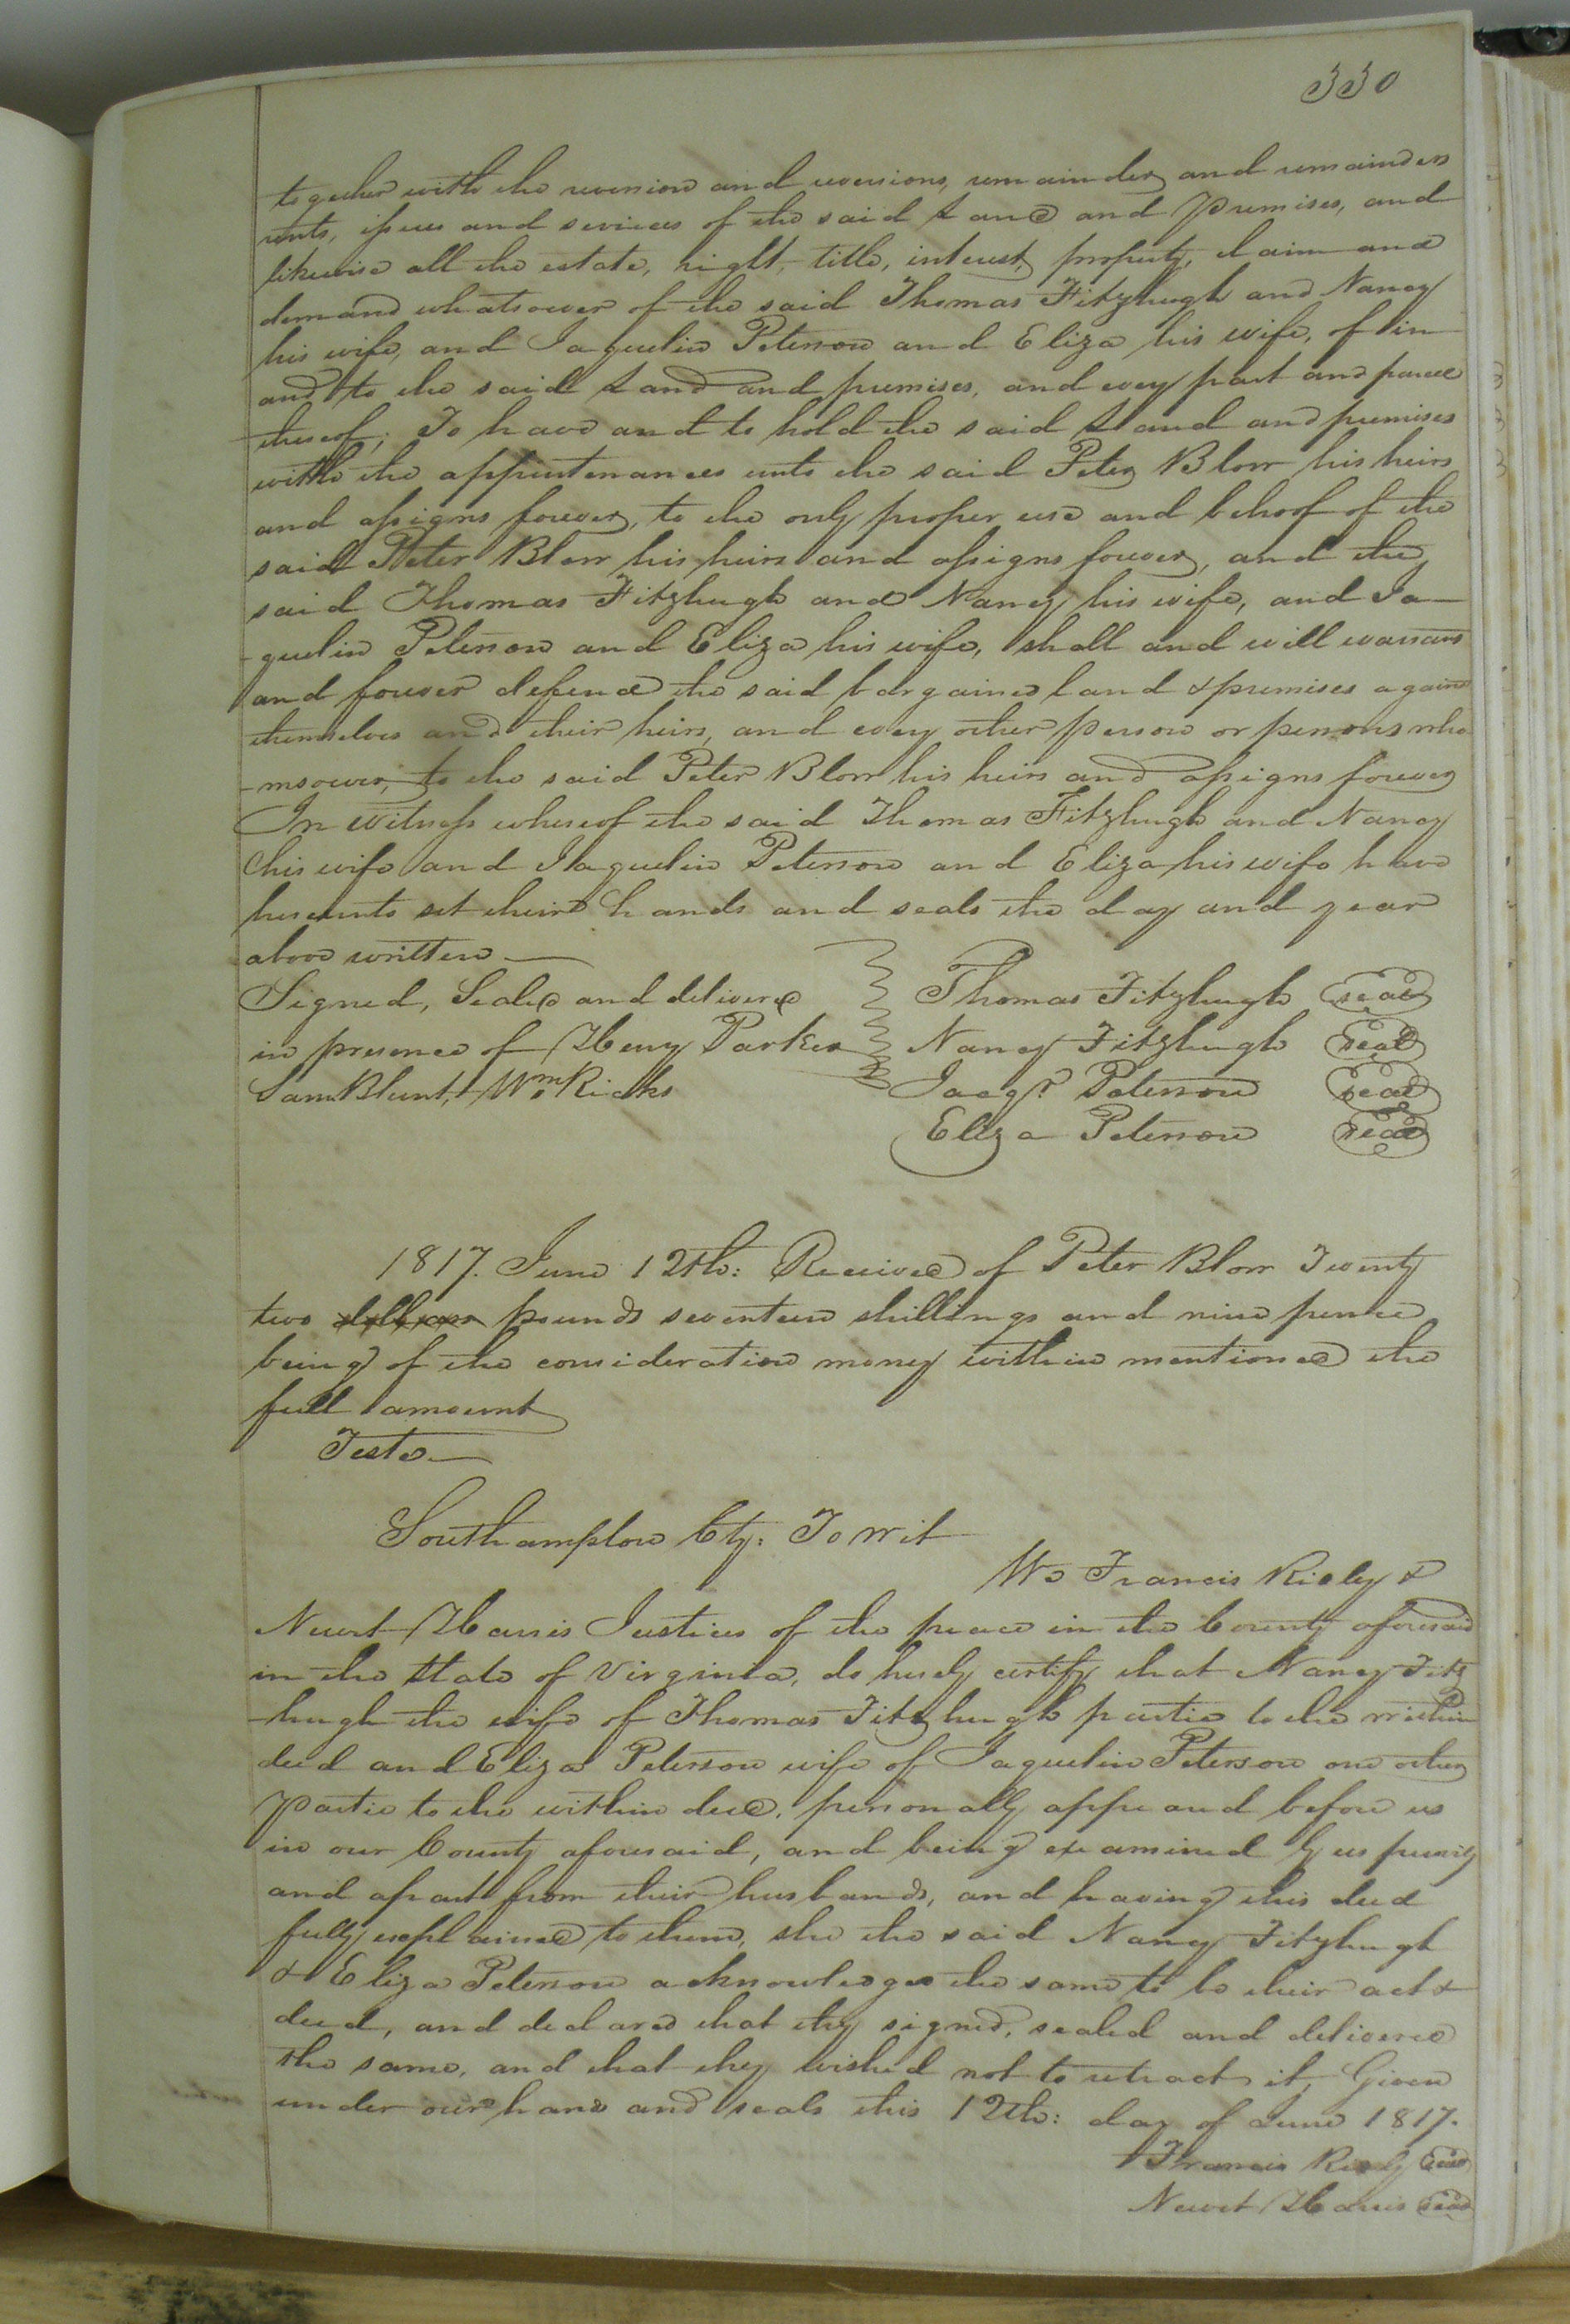 330
together with the reversion and reversions, remainder and remainders
rents, issues and services of the said Land and Premises, and
likewise all the estate, right, title, interest, property, claim and
demand whatsoever of the said Thomas Fitzhugh and Nancy
his wife, and Jaquelin Peterson and Eliza his wife, of in
and to the said Land and premises, and every part and parcel
thereof; To have and to hold the said Land and premises
with the appurtenances unto the said Peter Blow his heirs
and assigns forever, to the only proper use and behoof of the
said Peter Blow his heirs and assigns forever, and the
said Thomas Fitzhugh and Nancy his wife, and Ja-
-quelin Peterson and Eliza his wife, shall and will warrant
and forever defend the said bargained land & premises against
themselves and their heirs, and every other person or persons who
-msoever, to the said Peter Blow his heirs and assigns forever
In Witness whereof the said Thomas Fitzhugh and Nancy
his wife and Jaquelin Peterson and Eliza his wife have
hereunto set their hands and seals the day and year
above written —
Signed, Sealed and delivered Thomas Fitzhugh seal
in presence of Henry Parker Nancy Fitzhugh seal
Sam Blunt, Wm. Ricks Jaqn. Peterson seal
Eliza Peterson seal
1817. June 12th: Received of Peter Blow Twenty
two dollars pounds seventeen shillings and nine pence
being of the consideration money within mentioned the
full amount
Teste —
Southampton Cty: To wit
We Francis Ridley &
Newit Harris Justices of the peace in the County aforesaid
in the State of Virginia, do hereby certify that Nancy Fitz
-hugh the wife of Thomas Fitzhugh partie to the within
deed and Eliza Peterson wife of Jaquelin Peterson one other
Partie to the within deed, personally appeared before us
in our County aforesaid, and being examined by us privily
and apart from their husbands, and having this deed
fully explained to them, she the said Nancy Fitzhugh
& Eliza Peterson acknowledges the same to be their act &
deed, and declared that they signed, sealed and delivered
the same, and that they wished not to retract it, Given
under our hand and seals this 12th: day of June 1817.
Francis Ridley seal
Newit Harris seal